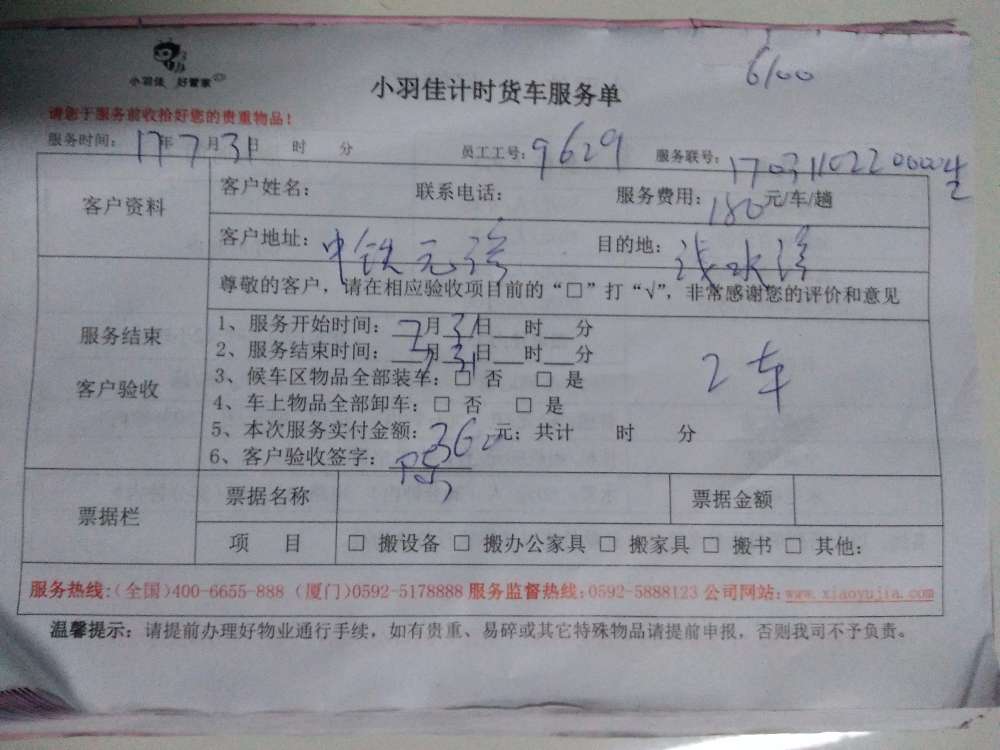 小羽佳 好管家
6100
小羽佳计时货车服务单
请您于服务前收拾好您的贵重物品！
服务时间： 17年7月31日 时 分 员工工号：9629 服务联号：
客户资料
客户姓名： 联系电话： 服务费用：180元/车/趟
客户地址：中铁元湾 目的地：浅水湾
服务结束
客户验收
尊敬的客户，请在相应验收项目前的“□”打“√”，非常感谢您的评价和意见
1、服务开始时间：7月31日__时__分
2、服务结束时间：7月31日__时__分
3、候车区物品全部装车：□ 否 □ 是
2车
4、车上物品全部卸车：□ 否 □ 是
5、本次服务实付金额：360元；共计 时 分
6、客户验收签字：
票据栏
票据名称 票据金额
项 目 □ 搬设备 □ 搬办公家具 □ 搬家具 □ 搬书 □ 其他：
服务热线：（全国）400-6655-888（厦门）0592-5178888 服务监督热线：0592-5888123 公司网站：www.xiaoyujia.com
温馨提示：请提前办理好物业通行手续，如有贵重、易碎或其它特殊物品请提前申报，否则我司不予负责。